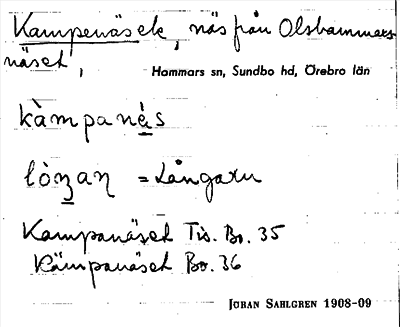 Kampenäset, näs från Olshammars-
näset,
Hammars sn, Sundbo hd, Örebro län
kàmpanä̀s
lòŋaɳ = Långaxen
Kampanäset Tis. Bo. 35
Kämpanäset Bo. 36
JÖRAN SAHLGREN 1908-09